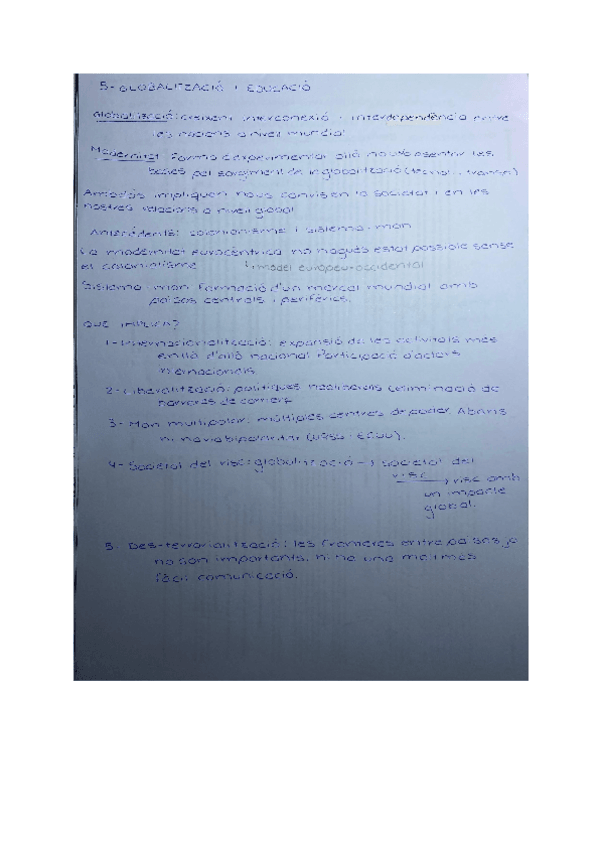 5- GLOBALITZACIÓ I EDUCACIÓ
Globalització: creixent interconexió i interdependència entre
les nacions a nivell mundial
Modernitat: Forma d'experimentar allò nou assentar les
bases pel sorgiment de la globalització (tecnol. i transm.)
Ambdós impliquen nous canvis en la societat i en les
nostres relacions a nivell global
Antecedents: colonialisme i sistema-mon
La modernitat eurocèntrica no hagués estat possible sense
el colonialisme model europeu-occidental
Sistema-mon: Formació d'un mercat mundial amb
països centrals i perifèrics.
QUÈ IMPLICA?
1- Internacionalització: expansió de les activitats més
enllà d'allò nacional. Participació d'actors
internacionals.
2- Liberalització: polítiques neoliberals (eliminació de
barreres de comerç
3- Mon multipolar: múltiples centres de poder. Abans
hi havia bipolaritat (URSS i EEUU).
4- Societat del risc: globalització → societat del
risc → risc amb
un impacte
global.
5. Des-terrorialització: les fronteres entre països ja
no son importants, hi ha una més
fàcil comunicació.